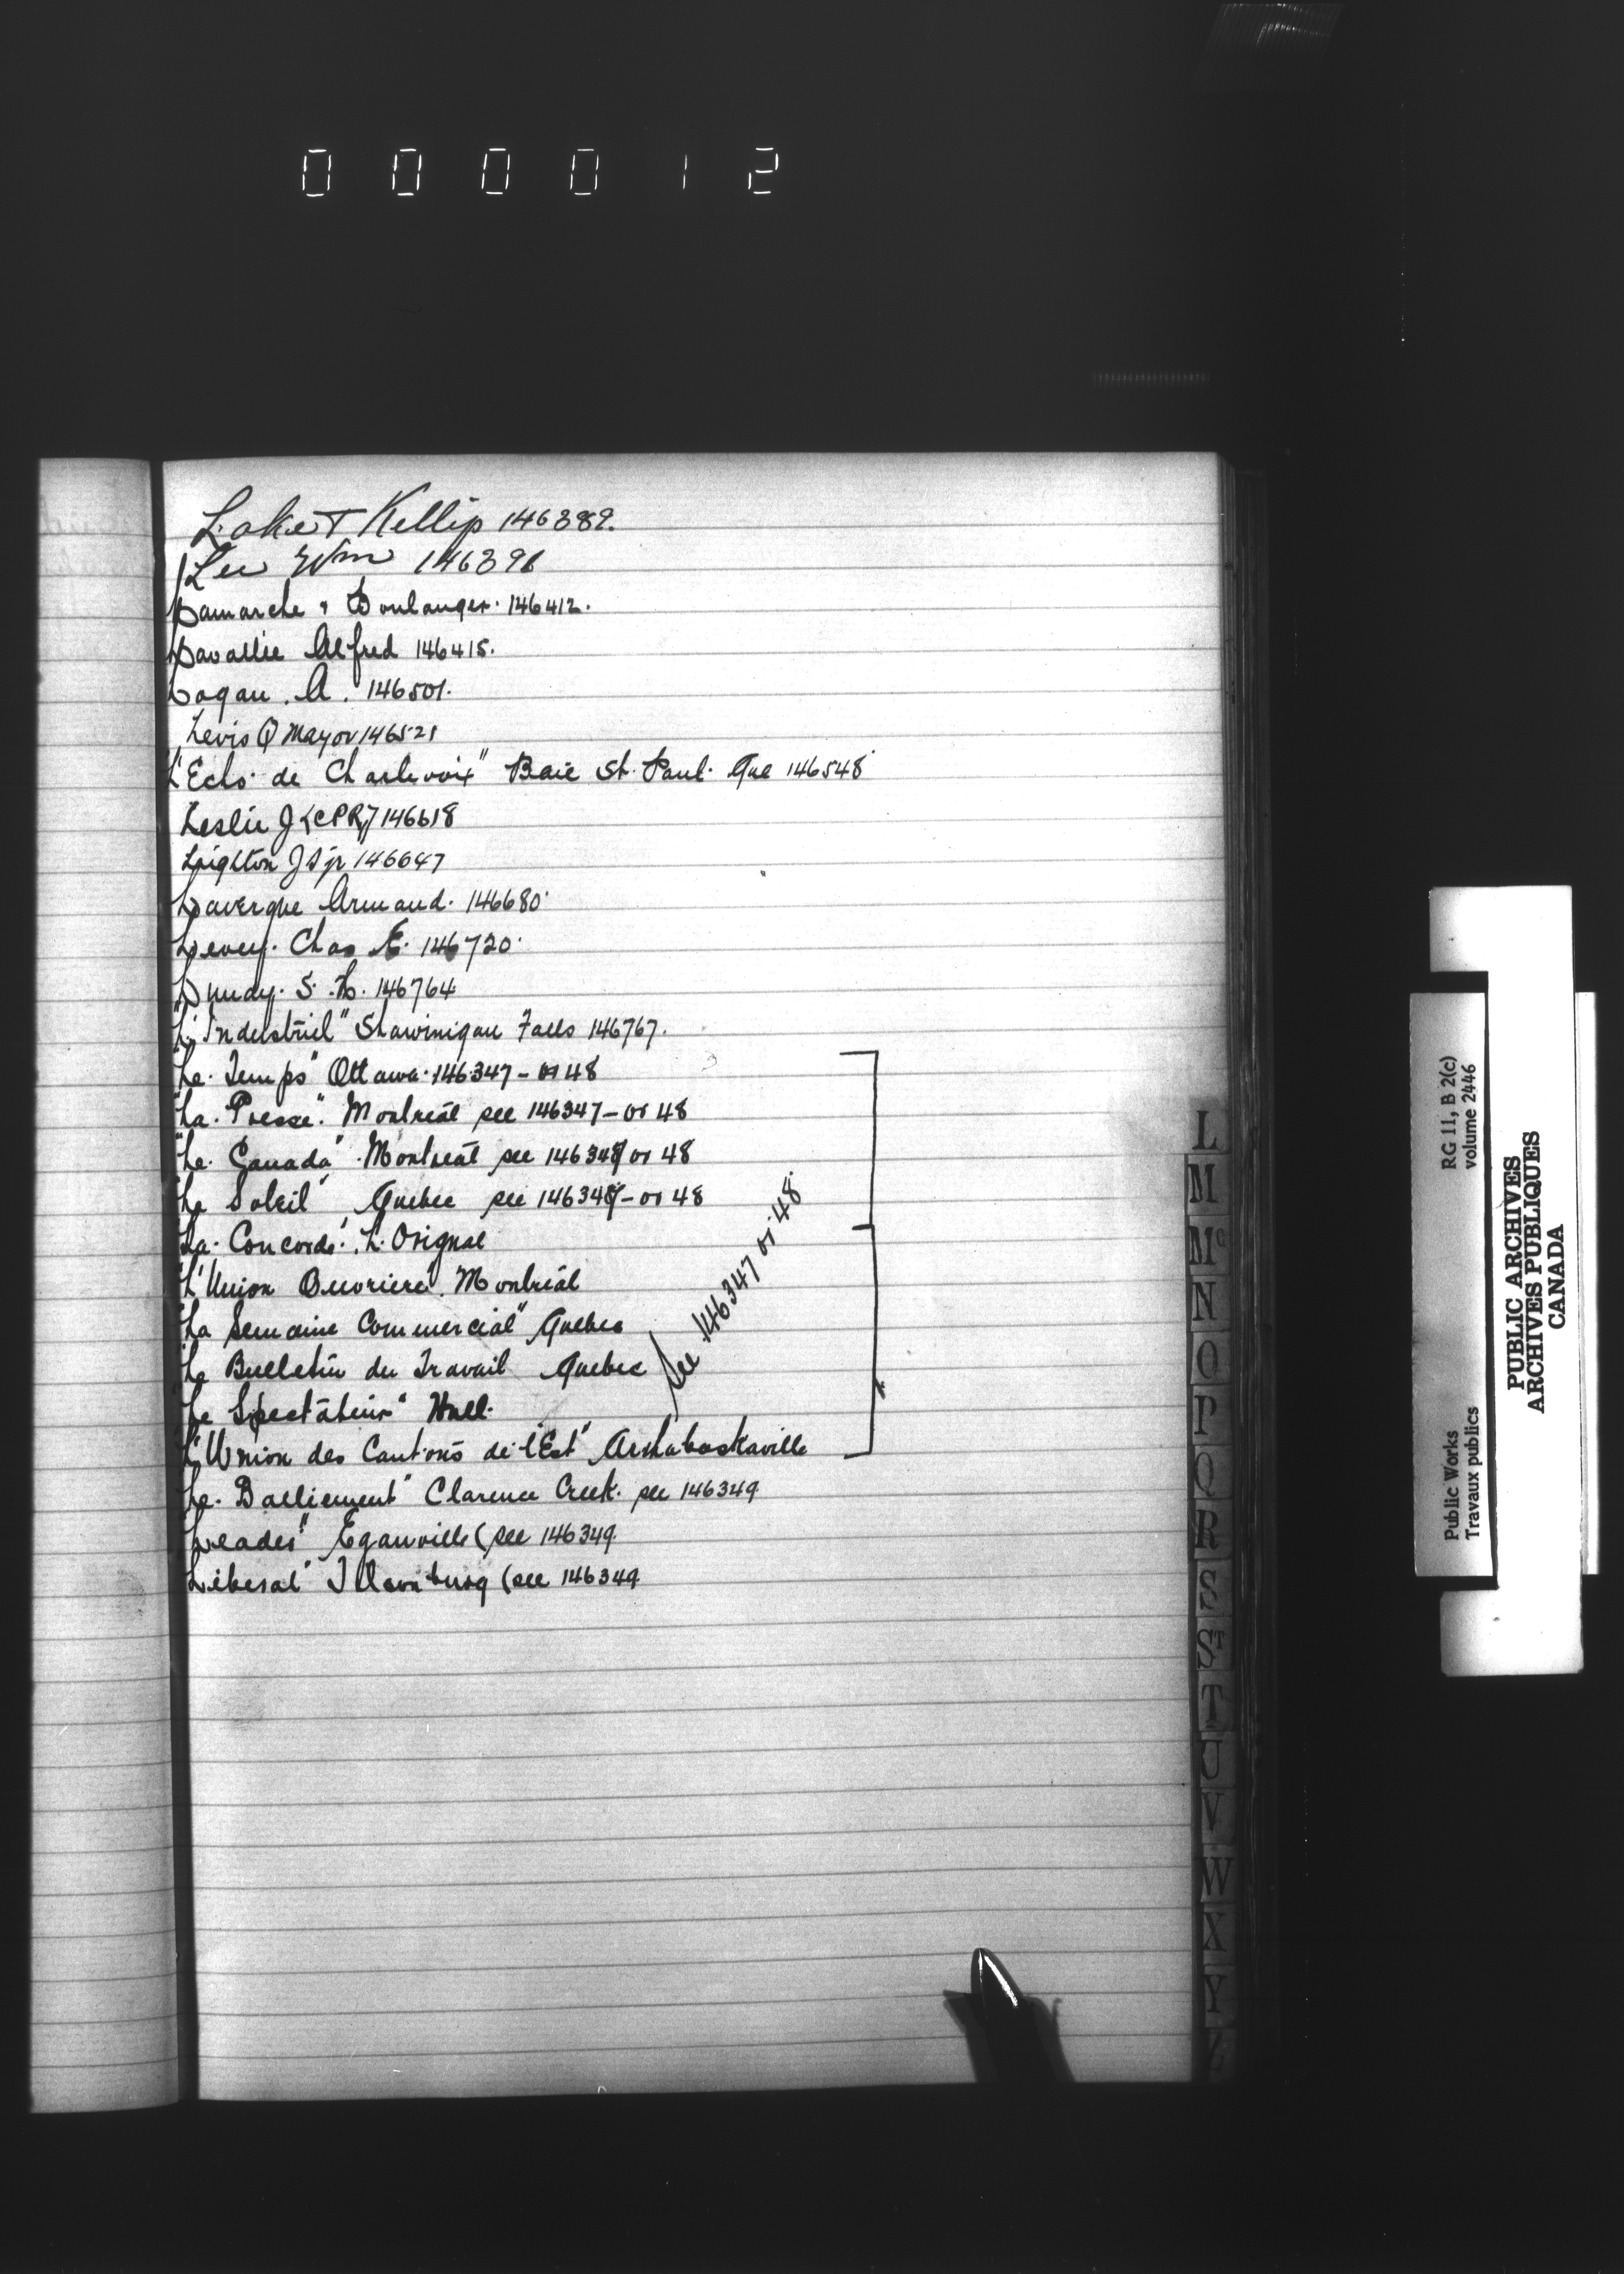 000012
Lake & Kellip 146389.
Lee Wm 146396
Lamarche & Boulanger. 146412.
Lavallie Alfred 146415.
Logan. A. 146501.
Levis Q Mayor 146521
L'Echo de Charlevoix" Baie St. Paul. Que 146548
Leslie J (CPR) 146618
Leighton J S jr 146647
Lavergne Armand. 146680
Levey. Chas E. 146720
Lundy. S. H. 146764
"L'Industriel" Shawinigan Falls 146767.
"Le Temps" Ottawa. 146347 - or 48
"La Presse". Montreal see 146347 - or 48
"Le Canada" Montreal see 146347 or 48
"Le Soleil" Quebec see 146347 - or 48
"La Concorde". L'Orignal
"L'Union Ouvriere". Montreal
"La Semaine Commercial" Quebec
"Le Bulletin du Travail Quebec
"Le Spectateur" Hull.
"L'Union des Cantons de l'Est" Arthabaskaville
see 146347 or 48
Le. Ralliement" Clarence Creek. see 146349
Leader" Eganville (see 146349.
Liberal" Tilsonburg (see 146349
L
M
Mc
N
O
P
Q
R
S
ST
T
U
V
W
X
Y
Z
RG 11, B 2(c)
volume 2446
Public Works
Travaux publics
PUBLIC ARCHIVES
ARCHIVES PUBLIQUES
CANADA